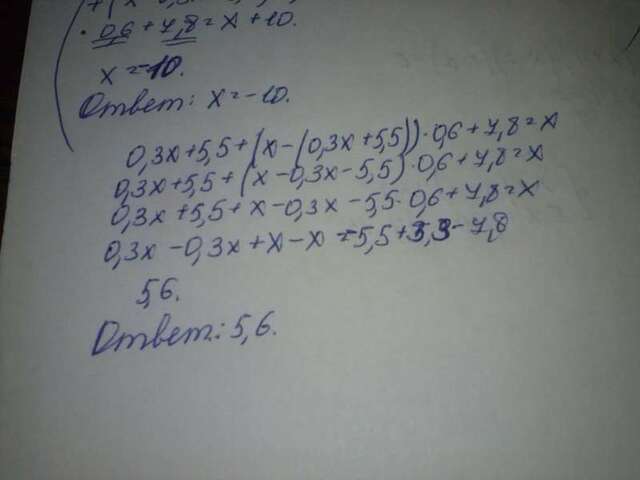 · 0,6 + 7,8 = x + 10.
x = -10.
Ответ: x = -10.
0,3x + 5,5 + (x - (0,3x + 5,5)) · 0,6 + 7,8 = x
0,3x + 5,5 + (x - 0,3x - 5,5) · 0,6 + 7,8 = x
0,3x + 5,5 + x - 0,3x - 5,5 · 0,6 + 7,8 = x
0,3x - 0,3x + x - x = 5,5 + 3,3 - 7,8
5,6.
Ответ: 5,6.